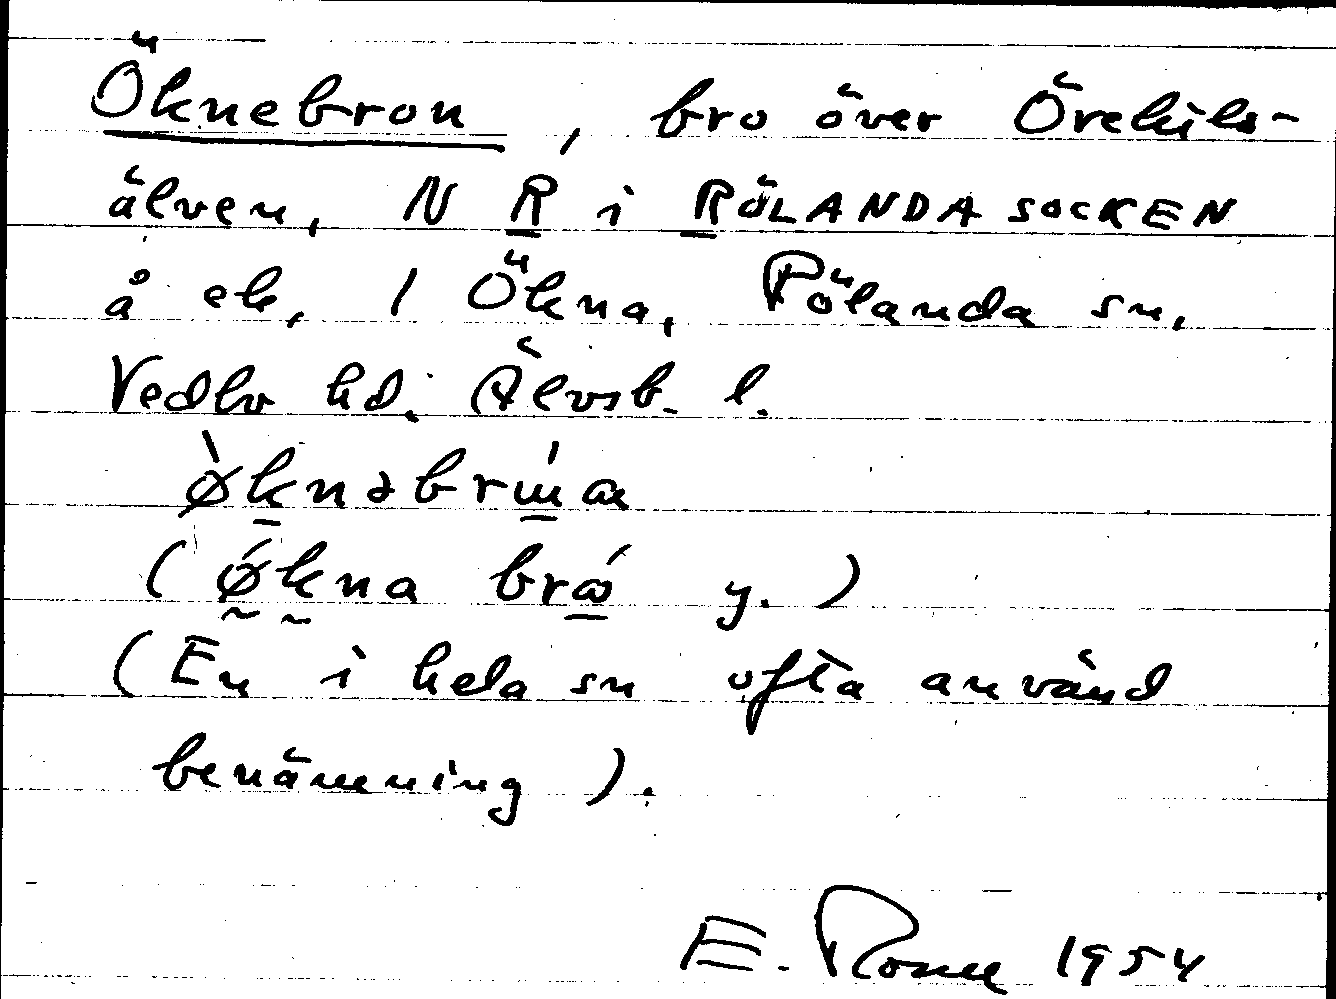 Öknebron, bro över Örekils-
älven, N R i RÖLANDA SOCKEN
å ek, 1 Ökna, Rölanda sn,
Vedbo hd. Älvsb. l.
(Økna brώ y.)
(En i hela sn ofta använd
benämning).
E. 1954